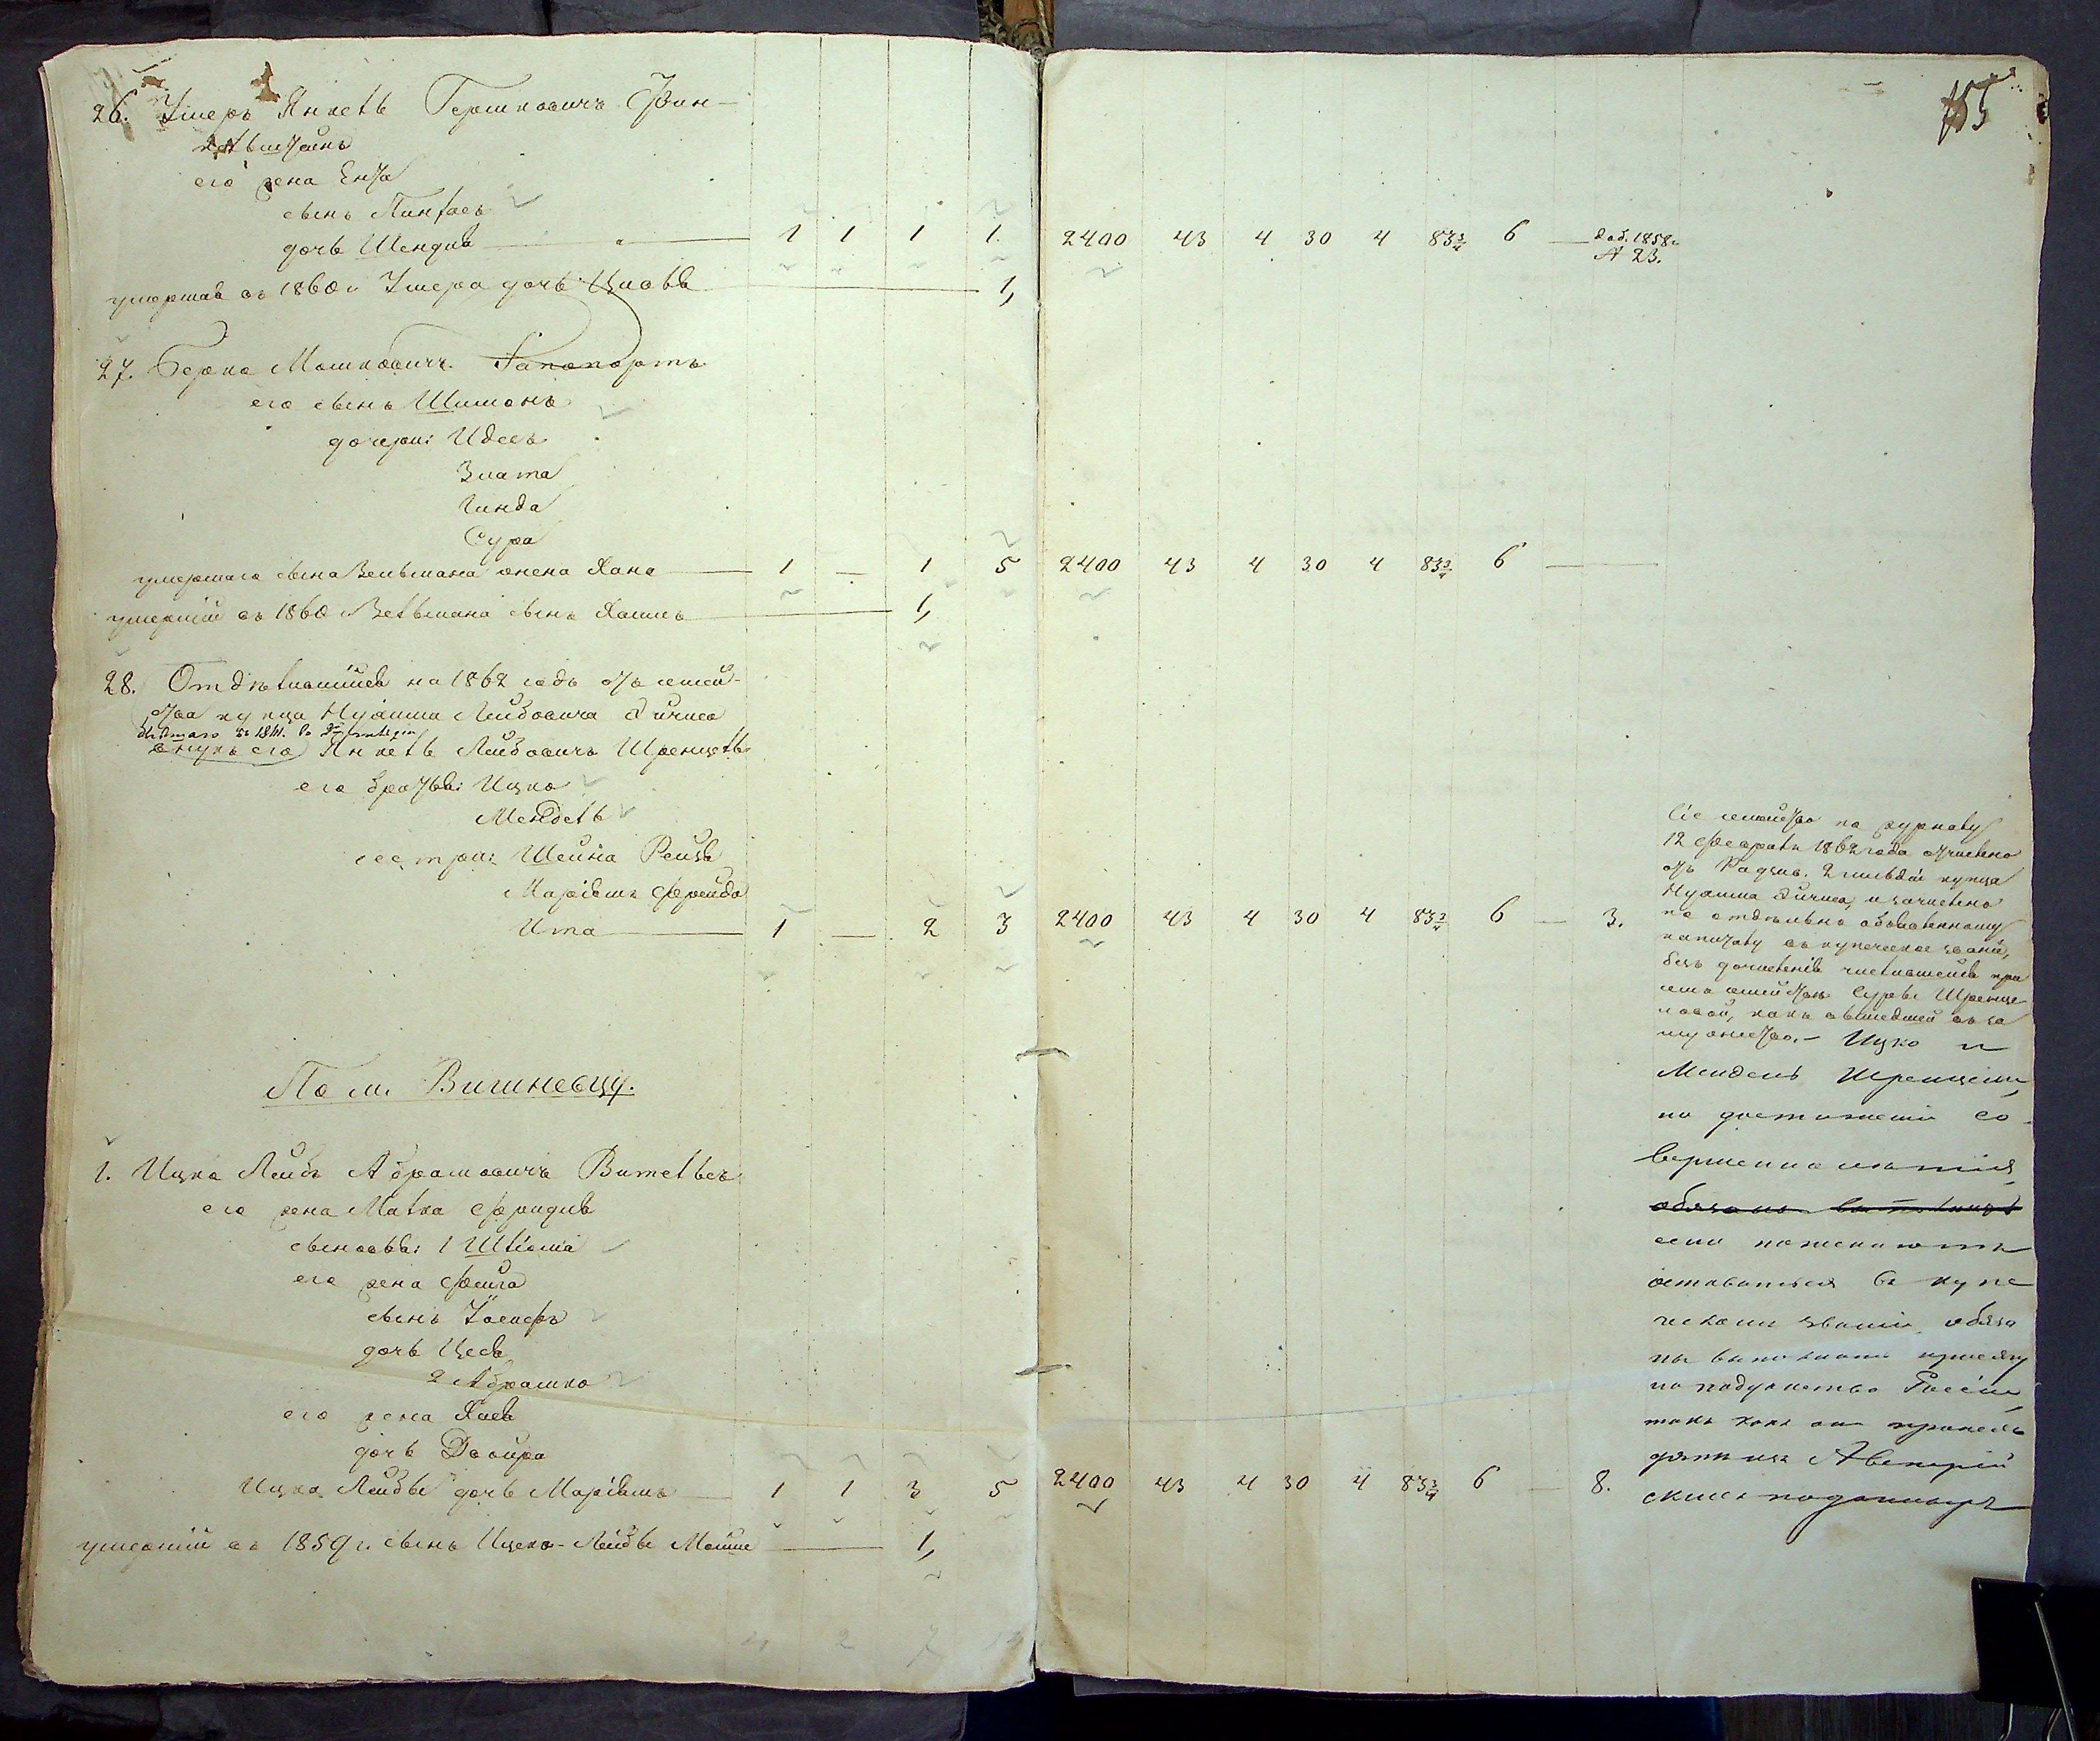 155
26. Умеръ Янкель Гершковичъ Фин-
кельштейнъ
его жена Ента
сынъ Пинхасъ
дочь Шендля 1 1 1 1. 2400 43 4 30 4 83¾ 6 — доб. 1858 г.
№ 23.
умершая въ 1860 г. Умера дочь Циовья 1,
27. Берко Мошковичъ Рапопортъ
его сынъ Шимонъ
дочери: Идесъ
Злата
Гинда
Сура
умершаго сына Зельмана жена Хана 1 — 1 5 2400 43 4 30 4 83¾ 6 —
умершій въ 1860 г. Зельмана сынъ Хаимъ 1,
28. Отдѣлившійся на 1862 годъ отъ семей-
ства купца Нухима Лейбовича
внукъ его Янкель Лейбовичъ Шренцель
его братья: Ицко
Мендель
сестры: Шейна Рейзя
Маріямъ Фрейда
Ита 1 — 2 3 2400 43 4 30 4 83¾ 6 — 3.
Сіе семейство по журналу
12 Февраля 1862 года отчислено
отъ Радзив. 2 гильдіи купца
Нухима и зачислено
по отдѣльно объявленному
капиталу въ купеческое званіе,
безъ дочисленія числившейся при
семъ семействѣ Суры Шренце-
ловой, какъ вышедшей въ за-
мужество. — Ицко и
Мендель Шренцели,
по достиженіи со-
вершеннолѣтія,
если пожелаютъ
оставаться въ купе-
ческомъ званіи обяза-
ны выполнить присягу
на подданство Россіи
такъ какъ они происхо-
дятъ изъ Австрій-
скихъ подданныхъ
По м. Вишневцу.
1. Ицко Лейбъ Абрамовичъ Вительсъ
его жена Малка Фридля
сыновья: 1 Шліома
его жена Фейга
сынъ Іосифъ
дочь Цеся
2 Абрашко
его жена Хася
дочь Двойра
Ицка Лейбы дочь Маріямъ 1 1 3 5 2400 43 4 30 4 83¾ 6 — 8.
умершій въ 1859 г. сынъ Ицко-Лейбы Мошко 1,
2 7